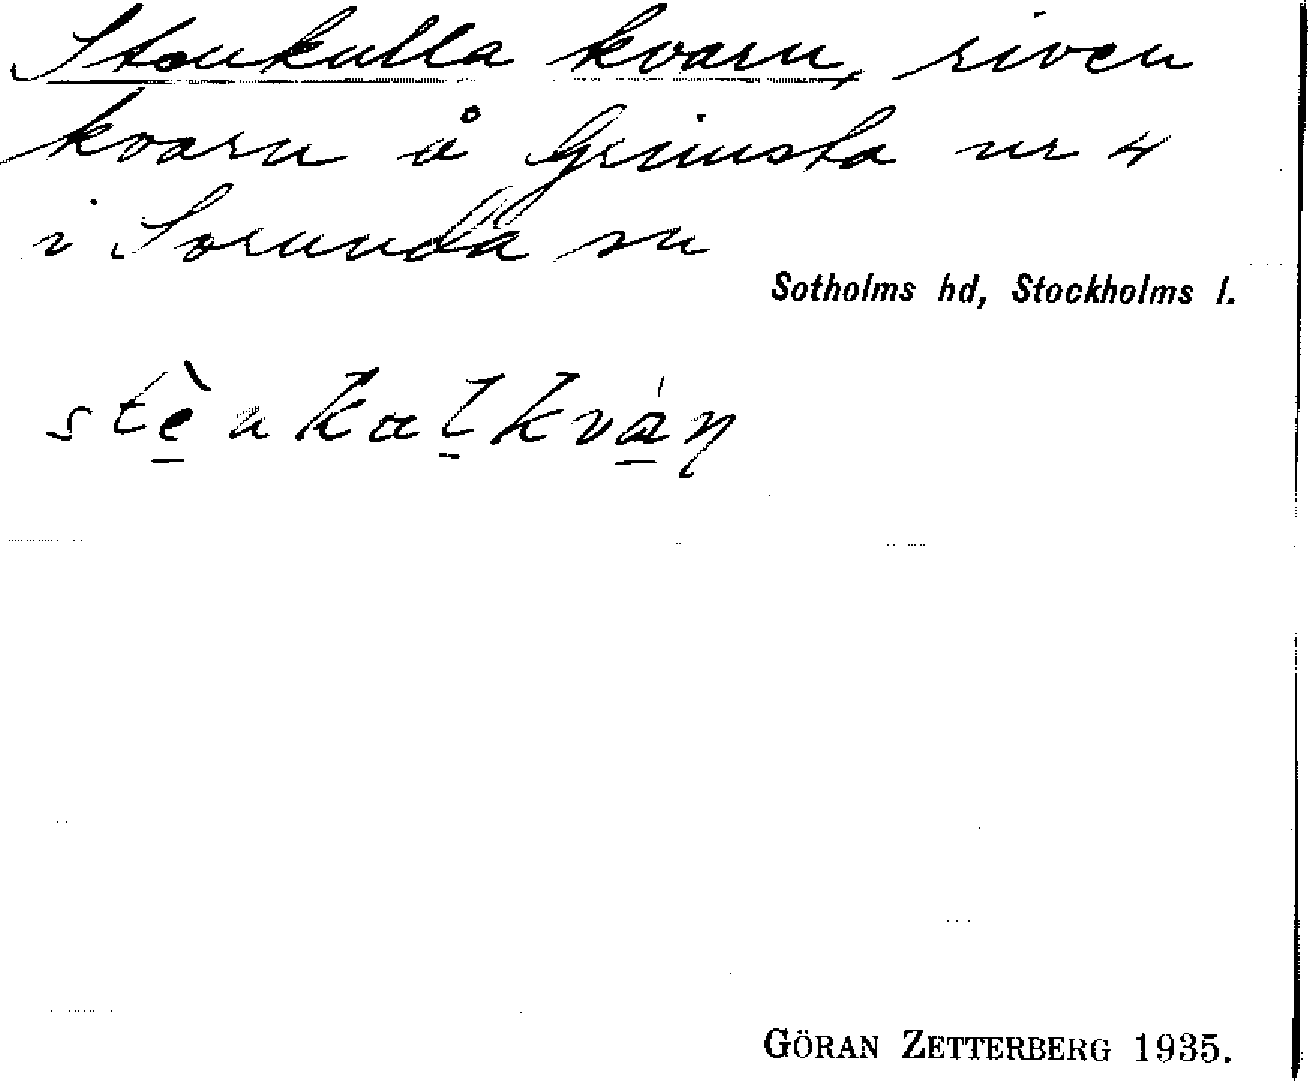 Stenkulla kvarn, riven
kvarn å Grimsta nr 4
i Sorunda sn
Sotholms hd, Stockholms l.
stè̱nkalkvá̱ṇ
GÖRAN ZETTERBERG 1935.